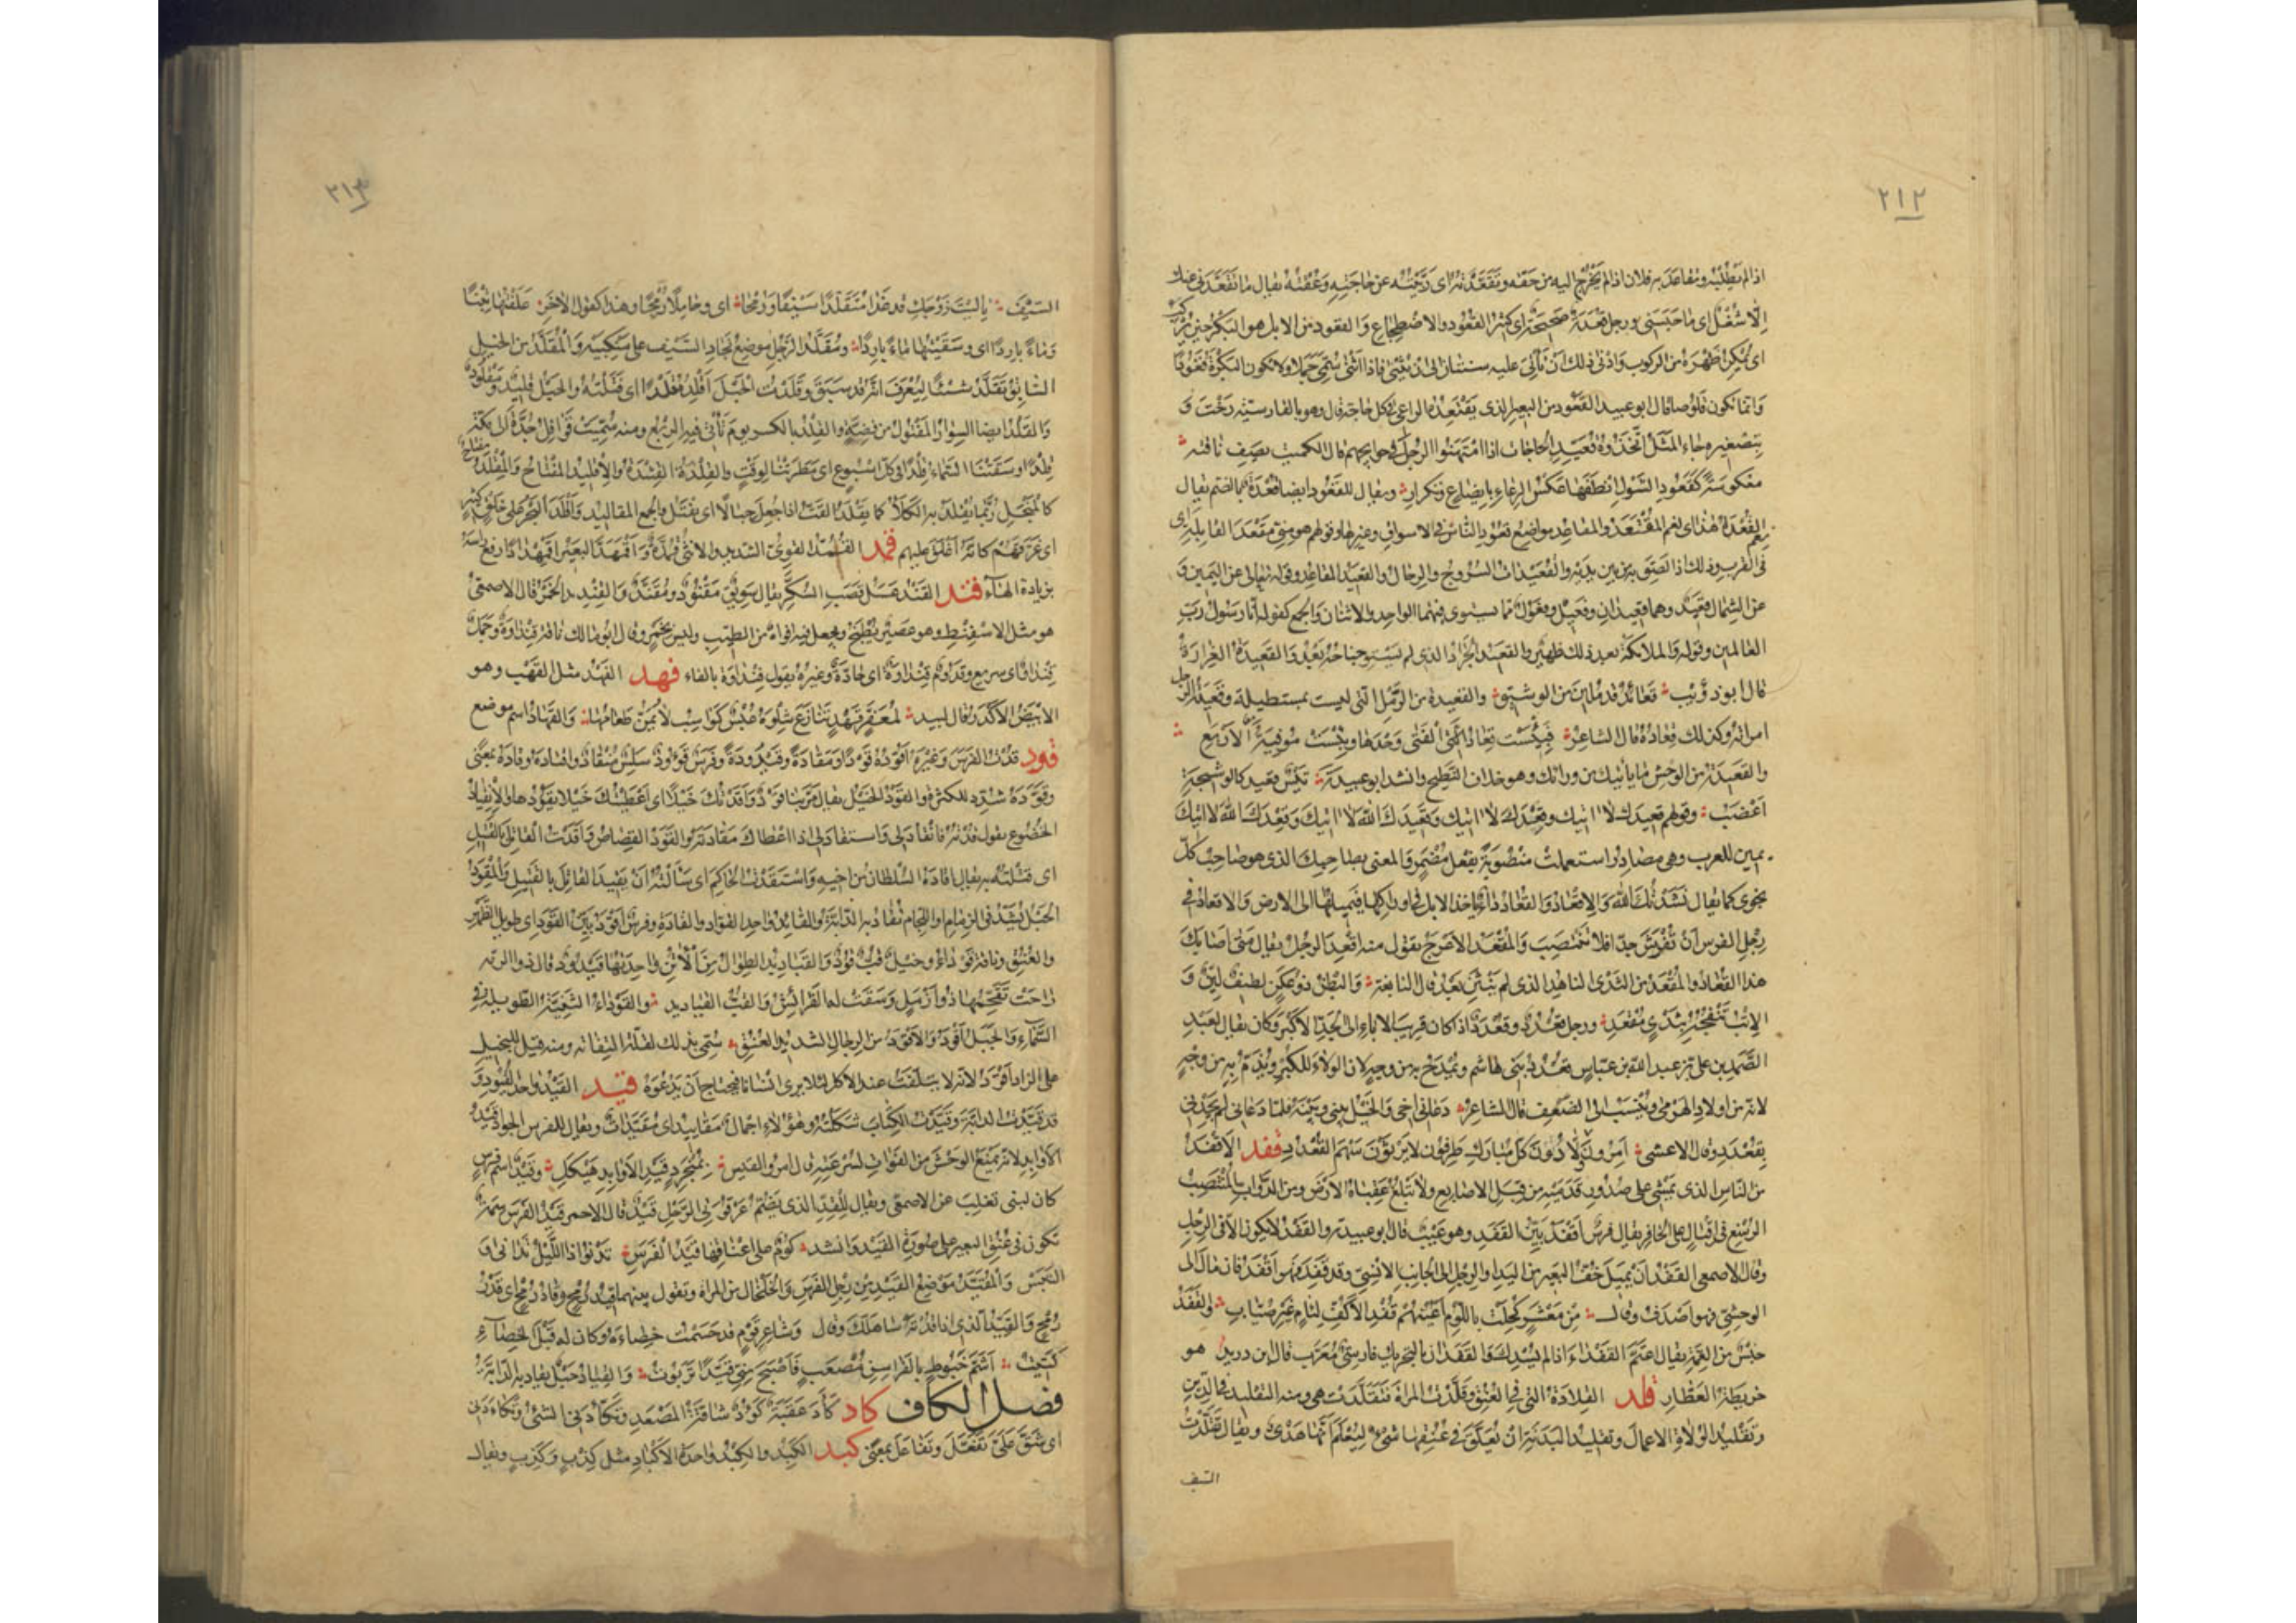 ٢١٢
اذا لم يطلبه وتقاعد به فلان اذا لم يخرج اليه من حقه وتقعدته اى ربثته عن حاجته وعقته يقال ما تقعدنى عنك
الا شغل اى ما حبسنى ورجل قعدة ضجعة اى كثير القعود والاضطجاع والقعود من الابل هو البكر حين يركب
اى يمكن ظهره من الركوب وادنى ذلك ان يأتى عليه سنتان الى ان يثنى فاذا اثنى سمى جملا ولا تكون البكرة قعودا
وانما تكون قلوصا قال ابو عبيد القعود من البعير الذى يقتعده الراعى فى كل حاجة قال وهو بالفارسية رخت و
بتصغيره جاء المثل اتخذوه قعيد الحاجات اذا امتهنوا الرجل فى حوايجهم قال الكميت يصف ناقته
معكوسة كقعود الشول انطقها عكس الرعاء بايضاع وتكرار ويقال للقعود ايضا قعدة بالضم يقال
نعم القعدة هذا اى نعم المقتعد والمقاعد مواضع قعود الناس فى الاسواق وغيرها وقولهم هو منى مقعد القابلة اى
فى القرب وذلك اذا لصق به من بين يديه والقعيدات السروج والرحال والقعيد المقاعد وقوله تعالى عن اليمين و
عن الشمال قعيد وهما قعيدان وفعيل وفعول مما يستوى فيهما الواحد والاثنان والجمع كقوله انا رسول رب
العالمين وقوله والملائكة بعد ذلك ظهير والقعيد الجراد الذى لم يستو جناحه بعد والقعيدة الغرارة
قال ابو ذؤيب قعائد قد ملئن من الوشيق والقعيدة من الرمل التى ليست بمستطيلة وقعيدة الرجل
امراته وكذلك قعاده قال الشاعر فبئست قعاد الفتى وحدها وبئست موفية الاربع
والقعيد من الوحش ما ياتيك من ورائك وهو خلاف النطيح وانشد ابو عبيدة تيس قعيد كالوشيجة
اعضب وقولهم قعيدك لا اتيك وقعدك لا اتيك وقعيدك الله لا اتيك وقعدك الله لا اتيك
يمين للعرب وهى مصادر استعملت منصوبة بفعل مضمر والمعنى بصاحبك الذى هو صاحب كل
نجوى كما يقال نشدتك الله والاقعاد والقعاد داء ياخذ الابل فى اوراكها فيميلها الى الارض والاقعاد فى
رجل الفرس ان تفرش جدا فلا تنتصب والمقعد الاعرج يقول منه اقعد الرجل يقال متى اصابك
هذا القعاد والمقعد من الثدى الناهد الذى لم ينثن بعد قال النابغة والبطن ذو عكن لطيف لين و
الاتب تنفجه بثدى مقعد ورجل قعدد وقعدد اذا كان قريب الاباء الى الجد الاكبر وكان يقال لعبد
الصمد بن على بن عبد الله بن عباس قعدد بنى هاشم ويمدح به من وجه لان الولاء للكبر ويذم به من وجه
لانه من اولاد الهرمى وينسب الى الضعف قال الشاعر دعانى اخى والخيل بينى وبينه فلما دعانى لم يجدنى
بقعدد وقال الاعشى امرون ولادون كل مبارك طرفون لا يرثون سهم القعدد قفد الاقفد
من الناس الذى يمشى على صدور قدميه من قبل الاصابع ولا تبلغ عقباه الارض ومن الدواب المنتصب
الرسغ فى اقبال على الحافر يقال فرس اقفد بين القفد وهو عيب قال ابو عبيدة والقفد لا يكون الا فى الرجل
وقال الاصمعى القفد ان يميل خف البعير من اليد او الرجل الى الجانب الانسى وقد قفد فهو اقفد فان مال الى
الوحشى فهو اصدف وقال من معشر كحلت باللوم اعينهم قفد الاكف لئام غير صياب والقفد
جنس من العمة يقال اعتم القفداء اذا لم يسدل والقفدان بالتحريك فارسى معرب قال ابن دريد هو
خريطة العطار قلد القلادة التى فى العنق وقلدت المراة فتقلدت هى ومنه التقليد فى الدين
وتقليد الولاة الاعمال وتقليد البدنة ان يعلق فى عنقها شئ ليعلم انها هدى ويقال تقلدت
السيف
٢١٣
السيف يا ليت زوجك قد غدا متقلدا سيفا ورمحا اى وحاملا رمحا وهذا كقول الاخر علفتها تبنا
وماء باردا اى وسقيتها ماء باردا ومقلد الرجل موضع نجاد السيف على منكبيه والمقلد من الخيل
السابق تقلد شيئا ليعرف انه قد سبق وقلدت الحبل اقلده قلدا اى فتلته والحبل قليد ومقلود
والقلد ايضا السوار المفتول من فضة والقلد بالكسر يوم تاتى فيه الربع ومنه سميت قوافل جدة الى مكة
قلدا وسقتنا السماء قلدا فى كل اسبوع اى مطرتنا لوقت والقلدة القشدة والاقليد المفتاح والمقلد مفتاح
كالمنجل ربما يقلد به الكلأ كما يقلد القت اذا جعل حبالا اى يفتل والجمع المقاليد واقلد البحر على خلق كثير
اى غرقهم كانه اغلق عليهم قمد القمد القوى الشديد والانثى قمدة واقمهد البعير اقمهدادا رفع راسه
بزيادة الهاء قند القند عسل قصب السكر يقال سويق مقنود ومقند والقنديد الخمر قال الاصمعى
هو مثل الاسفنط وهو عصير يطبخ ويجعل فيه افواه من الطيب وليس بخمر وقال ابو مالك ناقة قنداوة وجمل
قنداو اى سريع وقدوم قنداوة اى حادة وغيره يقول فنداوة بالفاء قهد القهد مثل القهب وهو
الابيض الاكدر قال لبيد لمعفر قهد تنازع شلوه غبس كواسب لا يمن طعامها والقهاد اسم موضع
قود قدت الفرس وغيره اقوده قودا ومقادة وقيدودة وفرس قوود سلس منقاد واقتاده وقاده بمعنى
وقوده شدد للكثرة والقود الخيل يقال مر بنا قود واقدتك خيلا اى اعطيتك خيلا تقودها والانقياد
الخضوع يقول قدته فانقاد لى واستقاد لى اذا اعطاك مقادته والقود القصاص واقدت القاتل بالقتيل
اى قتلته به يقال اقاده السلطان من اخيه واستقدت الحاكم اى سالته ان يقيد القاتل بالقتيل والمقود
الحبل يشد فى الزمام او اللجام تقاد به الدابة والقائد واحد القواد والقادة وفرس اقود بين القود اى طويل الظهر
والعنق وناقة قوداء وخيل قب قود والقياديد الطوال من الاتن واحدتها قيدود قال ذو الرمة
راحت يقحمها ذو ازمل وسقت له الفرائش والقب القياديد والقوداء الثنية الطويلة فى
السماء والجبل اقود والاقود من الرجال الشديد العنق سمى بذلك لقلة التفاته ومنه قيل للبخيل
على الزاد اقود لانه لا يتلفت عند الاكل لئلا يرى انسانا فيحتاج ان يدعوه قيد القيد واحد القيود و
قد قيدت الدابة وقيدت الكتاب شكلته وهؤلاء اجمال مقاييد اى مقيدات ويقال للفرس الجواد قيد
الاوابد لانه يمنع الوحش من الفوات لسرعته قال امرؤ القيس بمنجرد قيد الاوابد هيكل وقيد اسم فرس
كان لبنى تغلب عن الاصمعى ويقال للقد الذى يضم عرقوتى الرحل قيد قال الاحمر قيد الفرس سمة
تكون فى عنق البعير على صورة القيد وانشد كوم على اعناقها قيد الفرس تدنوا اذا الليل تدانى و
التبس والمقيد موضع القيد من رجل الفرس والخلخال من المراة وتقول بينهما قيد رمح وقاد رمح اى قدر
رمح والقيد الذى اذا قدته ساهلك وقال وشاعر قوم قد حسمت خصاءه وكان له قبل الخصاء
كتيت اشم خبوط بالفراسن مصعب فاصبح منى قيدا تربوت والقياد حبل يقاد به الدابة
فصل الكاف كاد كأد عقبة كؤد شاقة المصعد وتكأدنى الشئ وتكاءدنى
اى شق على تفعل وتفاعل بمعنى كبد الكبد والكبد واحدة الاكباد مثل كذب وكذب ويقال